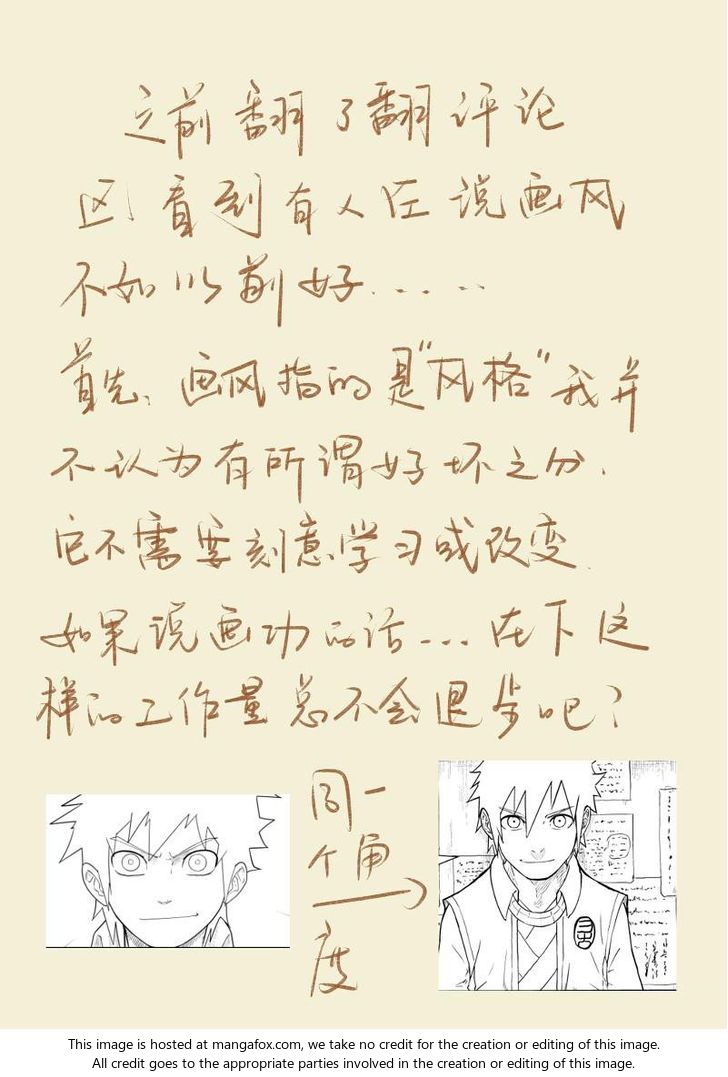 之前翻了翻评论
看到有人在说画风
不如以前好......
首先,画风指的是"风格"我并
不认为有所谓好坏之分.
它不需要刻意学习或改变.
如果说画功的话...在下这
样的工作量总不会退步吧?
同一
个角
度
This image is hosted at mangafox.com, we take no credit for the creation or editing of this image.
All credit goes to the appropriate parties involved in the creation or editing of this image.